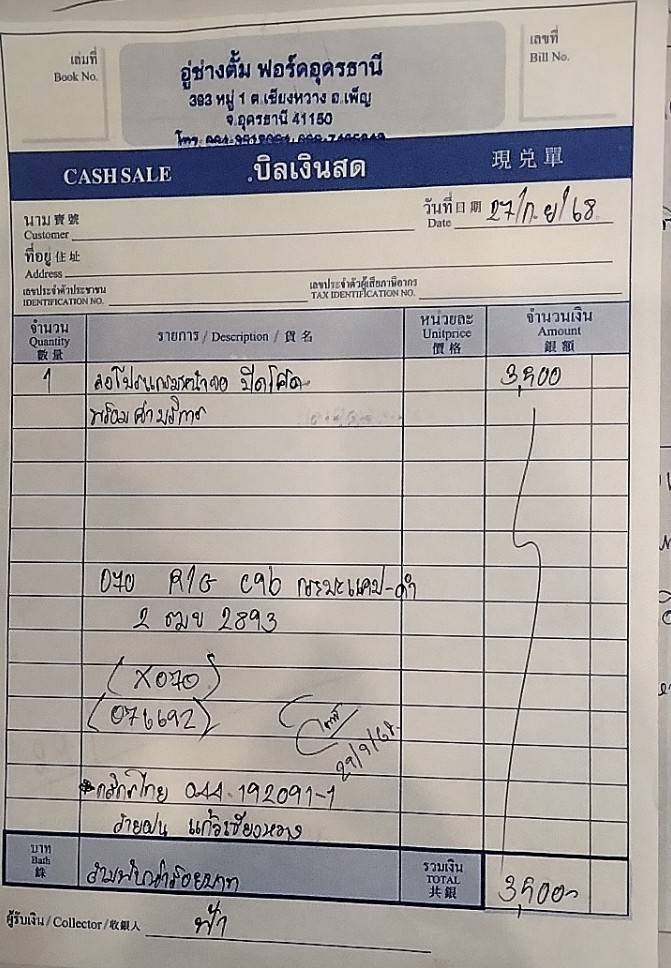 เล่มที่
Book No.
เลขที่
Bill No.
อู่ช่างตั้ม ฟอร์ดอุดรธานี
393 หมู่ 1 ต.เชียงหวาง อ.เพ็ญ
จ.อุดรธานี 41150
โทร.
CASH SALE บิลเงินสด 現兌單
วันที่日期 27/ก.ย/68
Date
นาม寶號
Customer
ที่อยู่住址
Address
เลขประจำตัวประชาชน
IDENTIFICATION NO.
เลขประจำตัวผู้เสียภาษีอากร
TAX IDENTIFICATION NO.
จำนวน
Quantity
數量
รายการ / Description / 貨名
หน่วยละ
Unitprice
價格
จำนวนเงิน
Amount
銀額
1 ลงโปรแกรมหน้าจอ ปิดโค๊ด 3,900
พร้อมค่าบริการ
070 R/G cab กระบะแคป-ดำ
2 ฒขข 2893
(X070)
(076692)
29/9/68
กสิกรไทย 044-192091-1
สายฝน แก้วเชียงหวาง
บาท
Bath
銖
สามพันเก้าร้อยบาท
รวมเงิน
TOTAL
共銀
3,900-
ผู้รับเงิน / Collector / 收銀人 ฟ้า